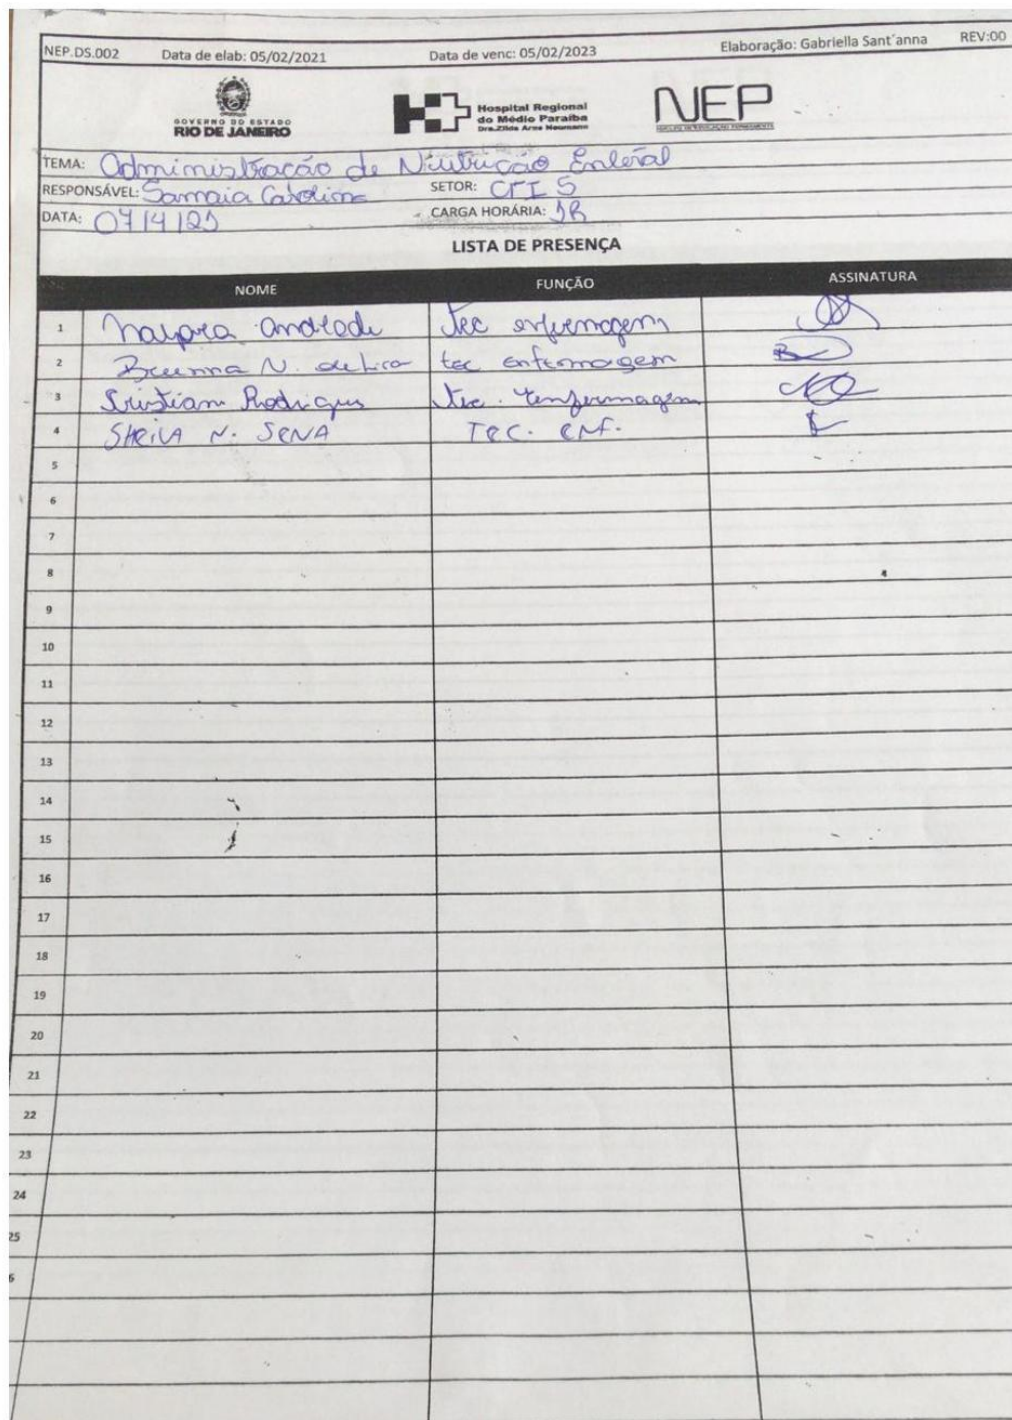 NEP.DS.002 Data de elab: 05/02/2021 Data de venc: 05/02/2023 Elaboração: Gabriella Sant´anna REV:00
GOVERNO DO ESTADO
RIO DE JANEIRO
Hospital Regional
do Médio Paraíba
Dra.Zilda Arns Neumann
NEP
NÚCLEO DE EDUCAÇÃO PERMANENTE
TEMA: Administração de Nutrição Enteral
RESPONSÁVEL: Samaia Carolina SETOR: CTI 5
DATA: 07/4/21 CARGA HORÁRIA: 1h
LISTA DE PRESENÇA
NOME FUNÇÃO ASSINATURA
1 Nayara Andrade Tec enfermagem
2 Brunna N. tec enfermagem
3 Cristiam Rodrigues Tec. enfermagem
4 SHEILA N. SENA TEC. ENF.
5
6
7
8
9
10
11
12
13
14
15
16
17
18
19
20
21
22
23
24
25
6